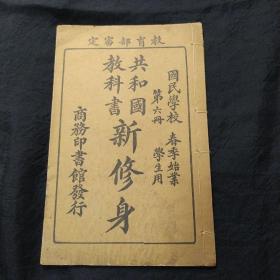 教育部審定
國民學校 春季始業
第六冊 學生用
共和國
教科書
新修身
商務印書館發行